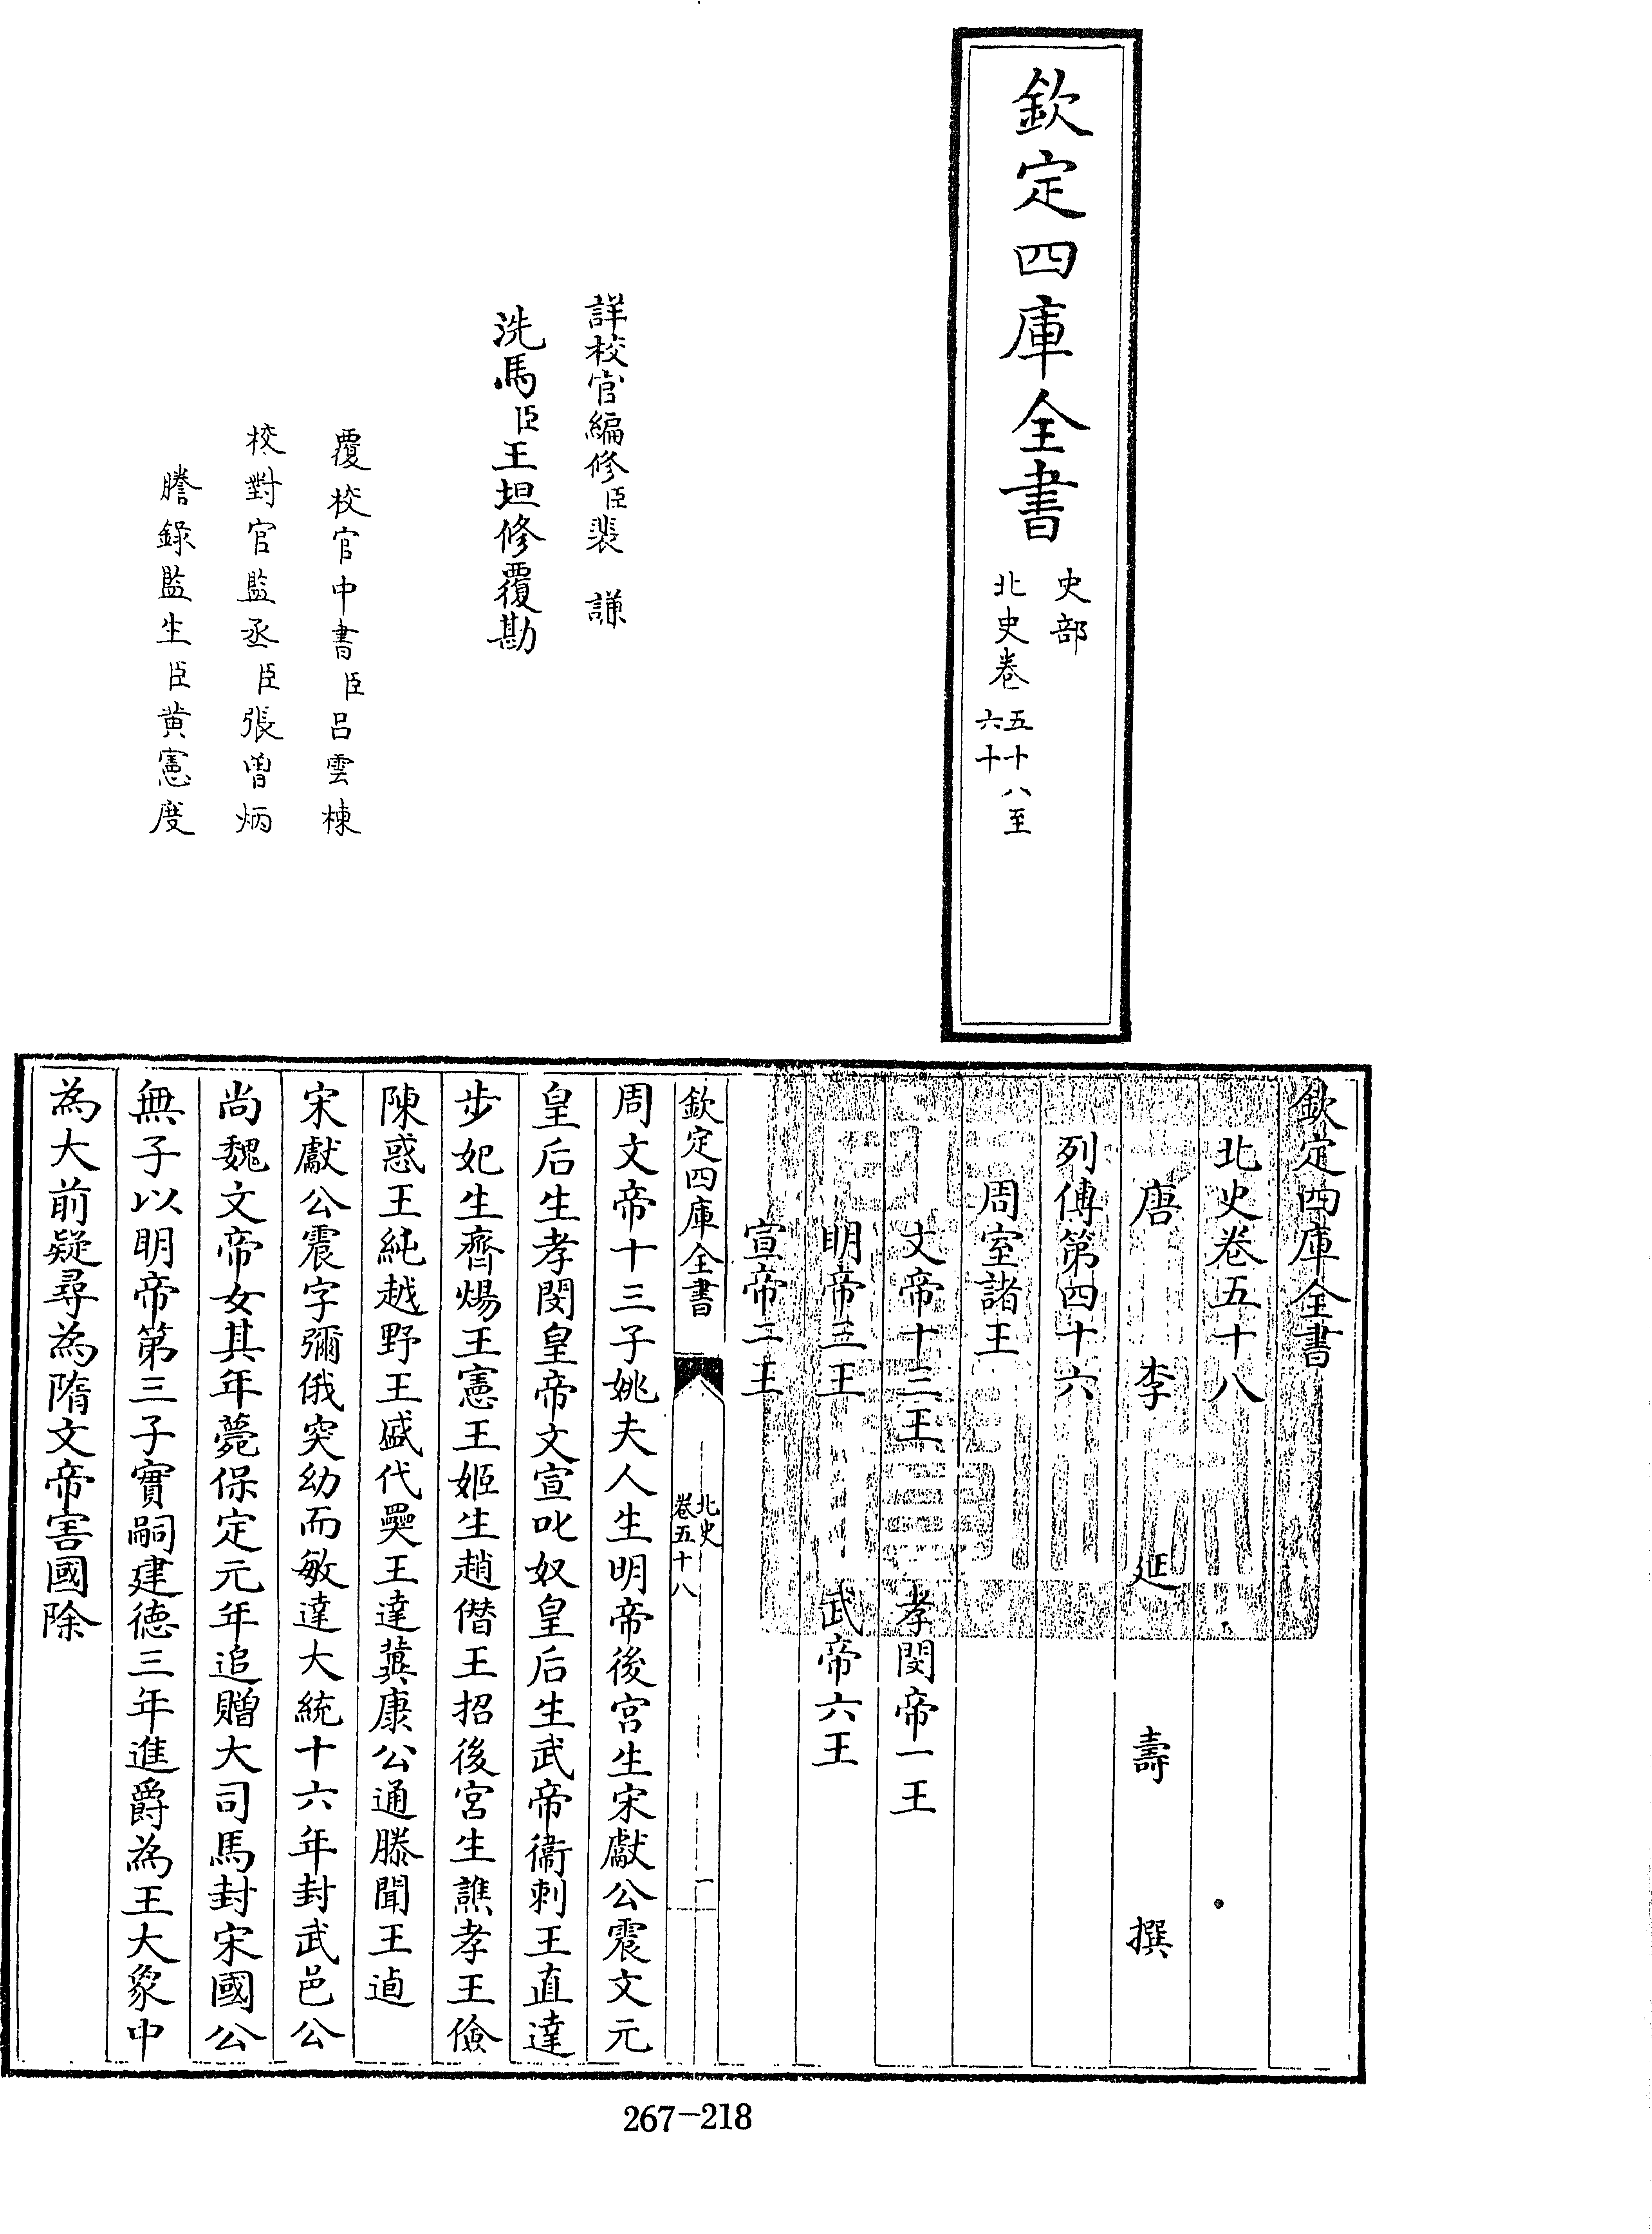 欽定四庫全書
史部
北史卷五十八至
六十
詳校官編修臣裴謙
洗馬臣王坦修覆勘
覆校官中書臣呂雲棟
校對官監丞臣張曾炳
謄錄監生臣黃憲度
欽定四庫全書
北史卷五十八
唐李延壽撰
列傳第四十六
周室諸王
文帝十三王 孝閔帝一王
明帝三王 武帝六王
宣帝二王
欽定四庫全書
北史
卷五十八
一
周文帝十三子姚夫人生明帝後宮生宋獻公震文元
皇后生孝閔皇帝文宣叱奴皇后生武帝衞剌王直達
步妃生齊煬王憲王姬生趙僭王招後宮生譙孝王儉
陳惑王純越野王盛代奰王達兾康公通滕聞王逌
宋獻公震字彌俄突幼而敏達大統十六年封武邑公
尚魏文帝女其年薨保定元年追贈大司馬封宋國公
無子以明帝第三子實嗣建德三年進爵為王大象中
為大前疑尋為隋文帝害國除
267-218